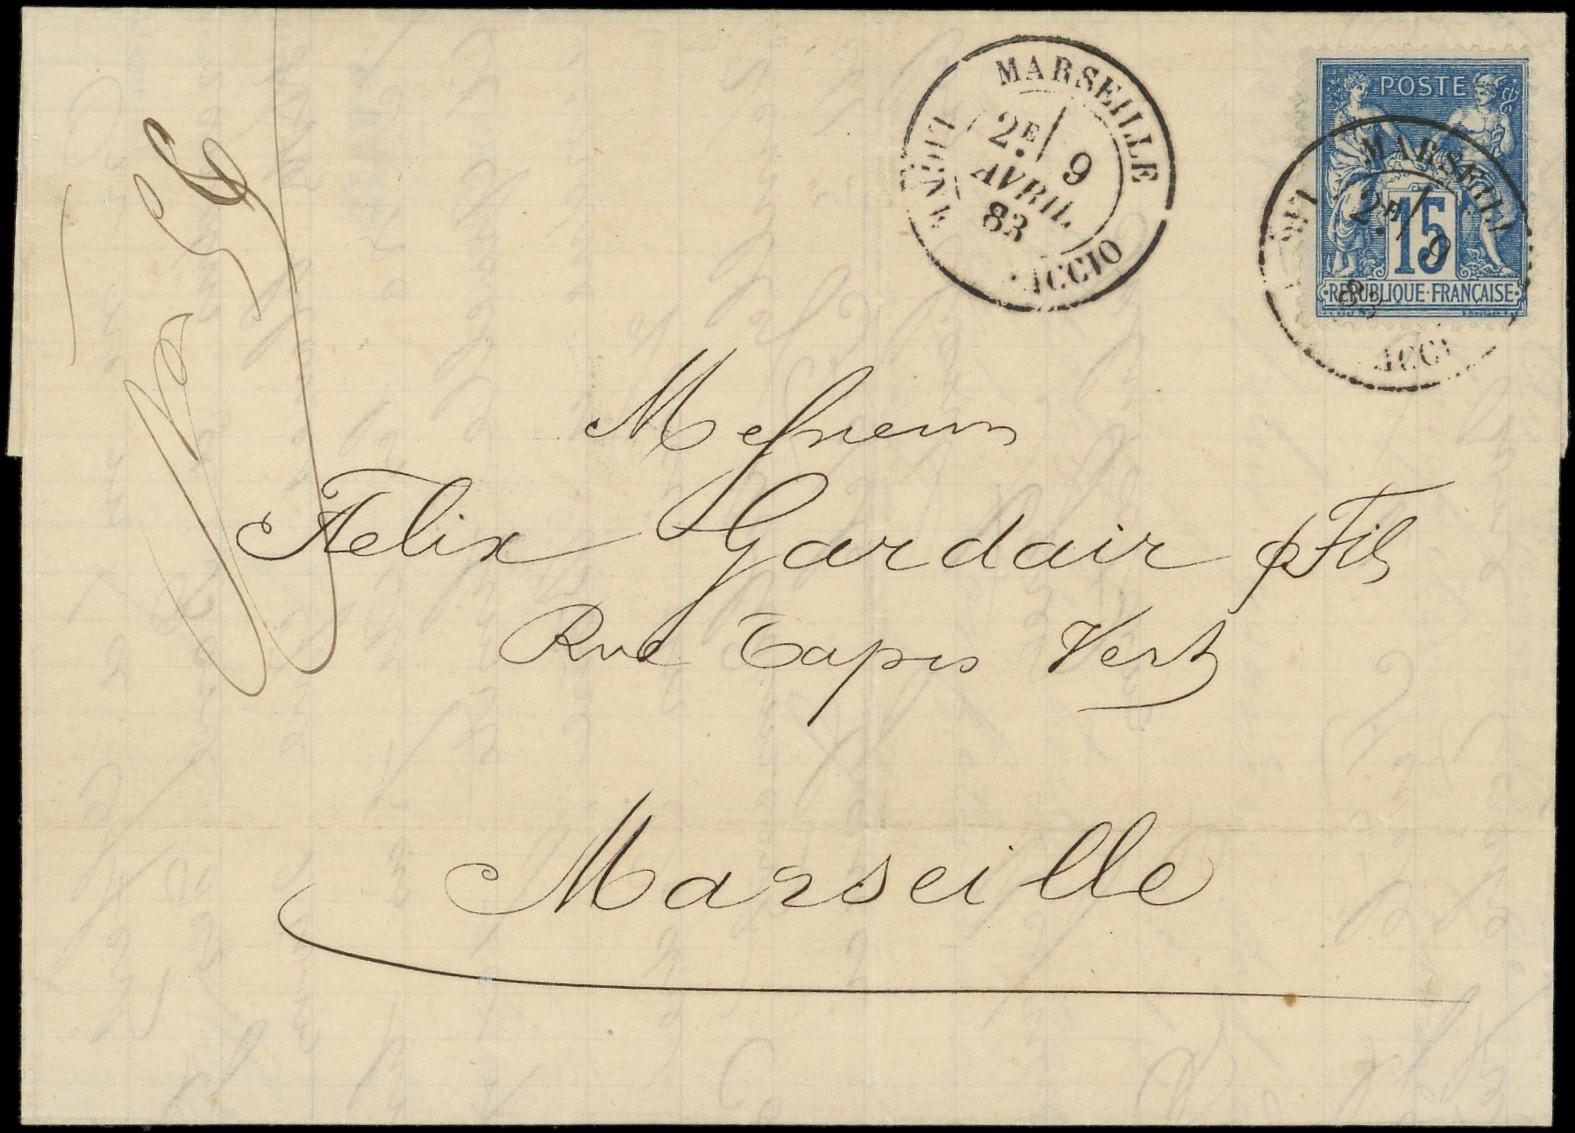 MARSEILLE
2E / 9
AVRIL
83
LIGNE
ACCIO
POSTE
15
REPUBLIQUE FRANÇAISE
MARSEILL
2E / 9
83
ACC
Messieurs
Felix Gardair & Fils
Rue Tapis Vert
Marseille